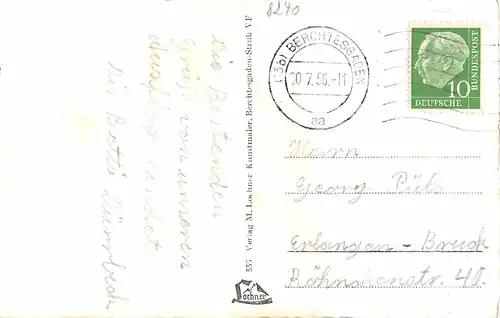 8240
(13b) BERCHTESGADEN
20.7.56.-11
aa
DEUTSCHE
BUNDESPOST
10
Die Besten
Grüße von unserem
Ausflug sendet
Die Betti
Verlag M. Lochner Kunstmaler, Berchtesgaden-Strub VF
535
Lochner
Herrn
Georg
Erlangen - Bruck
40.